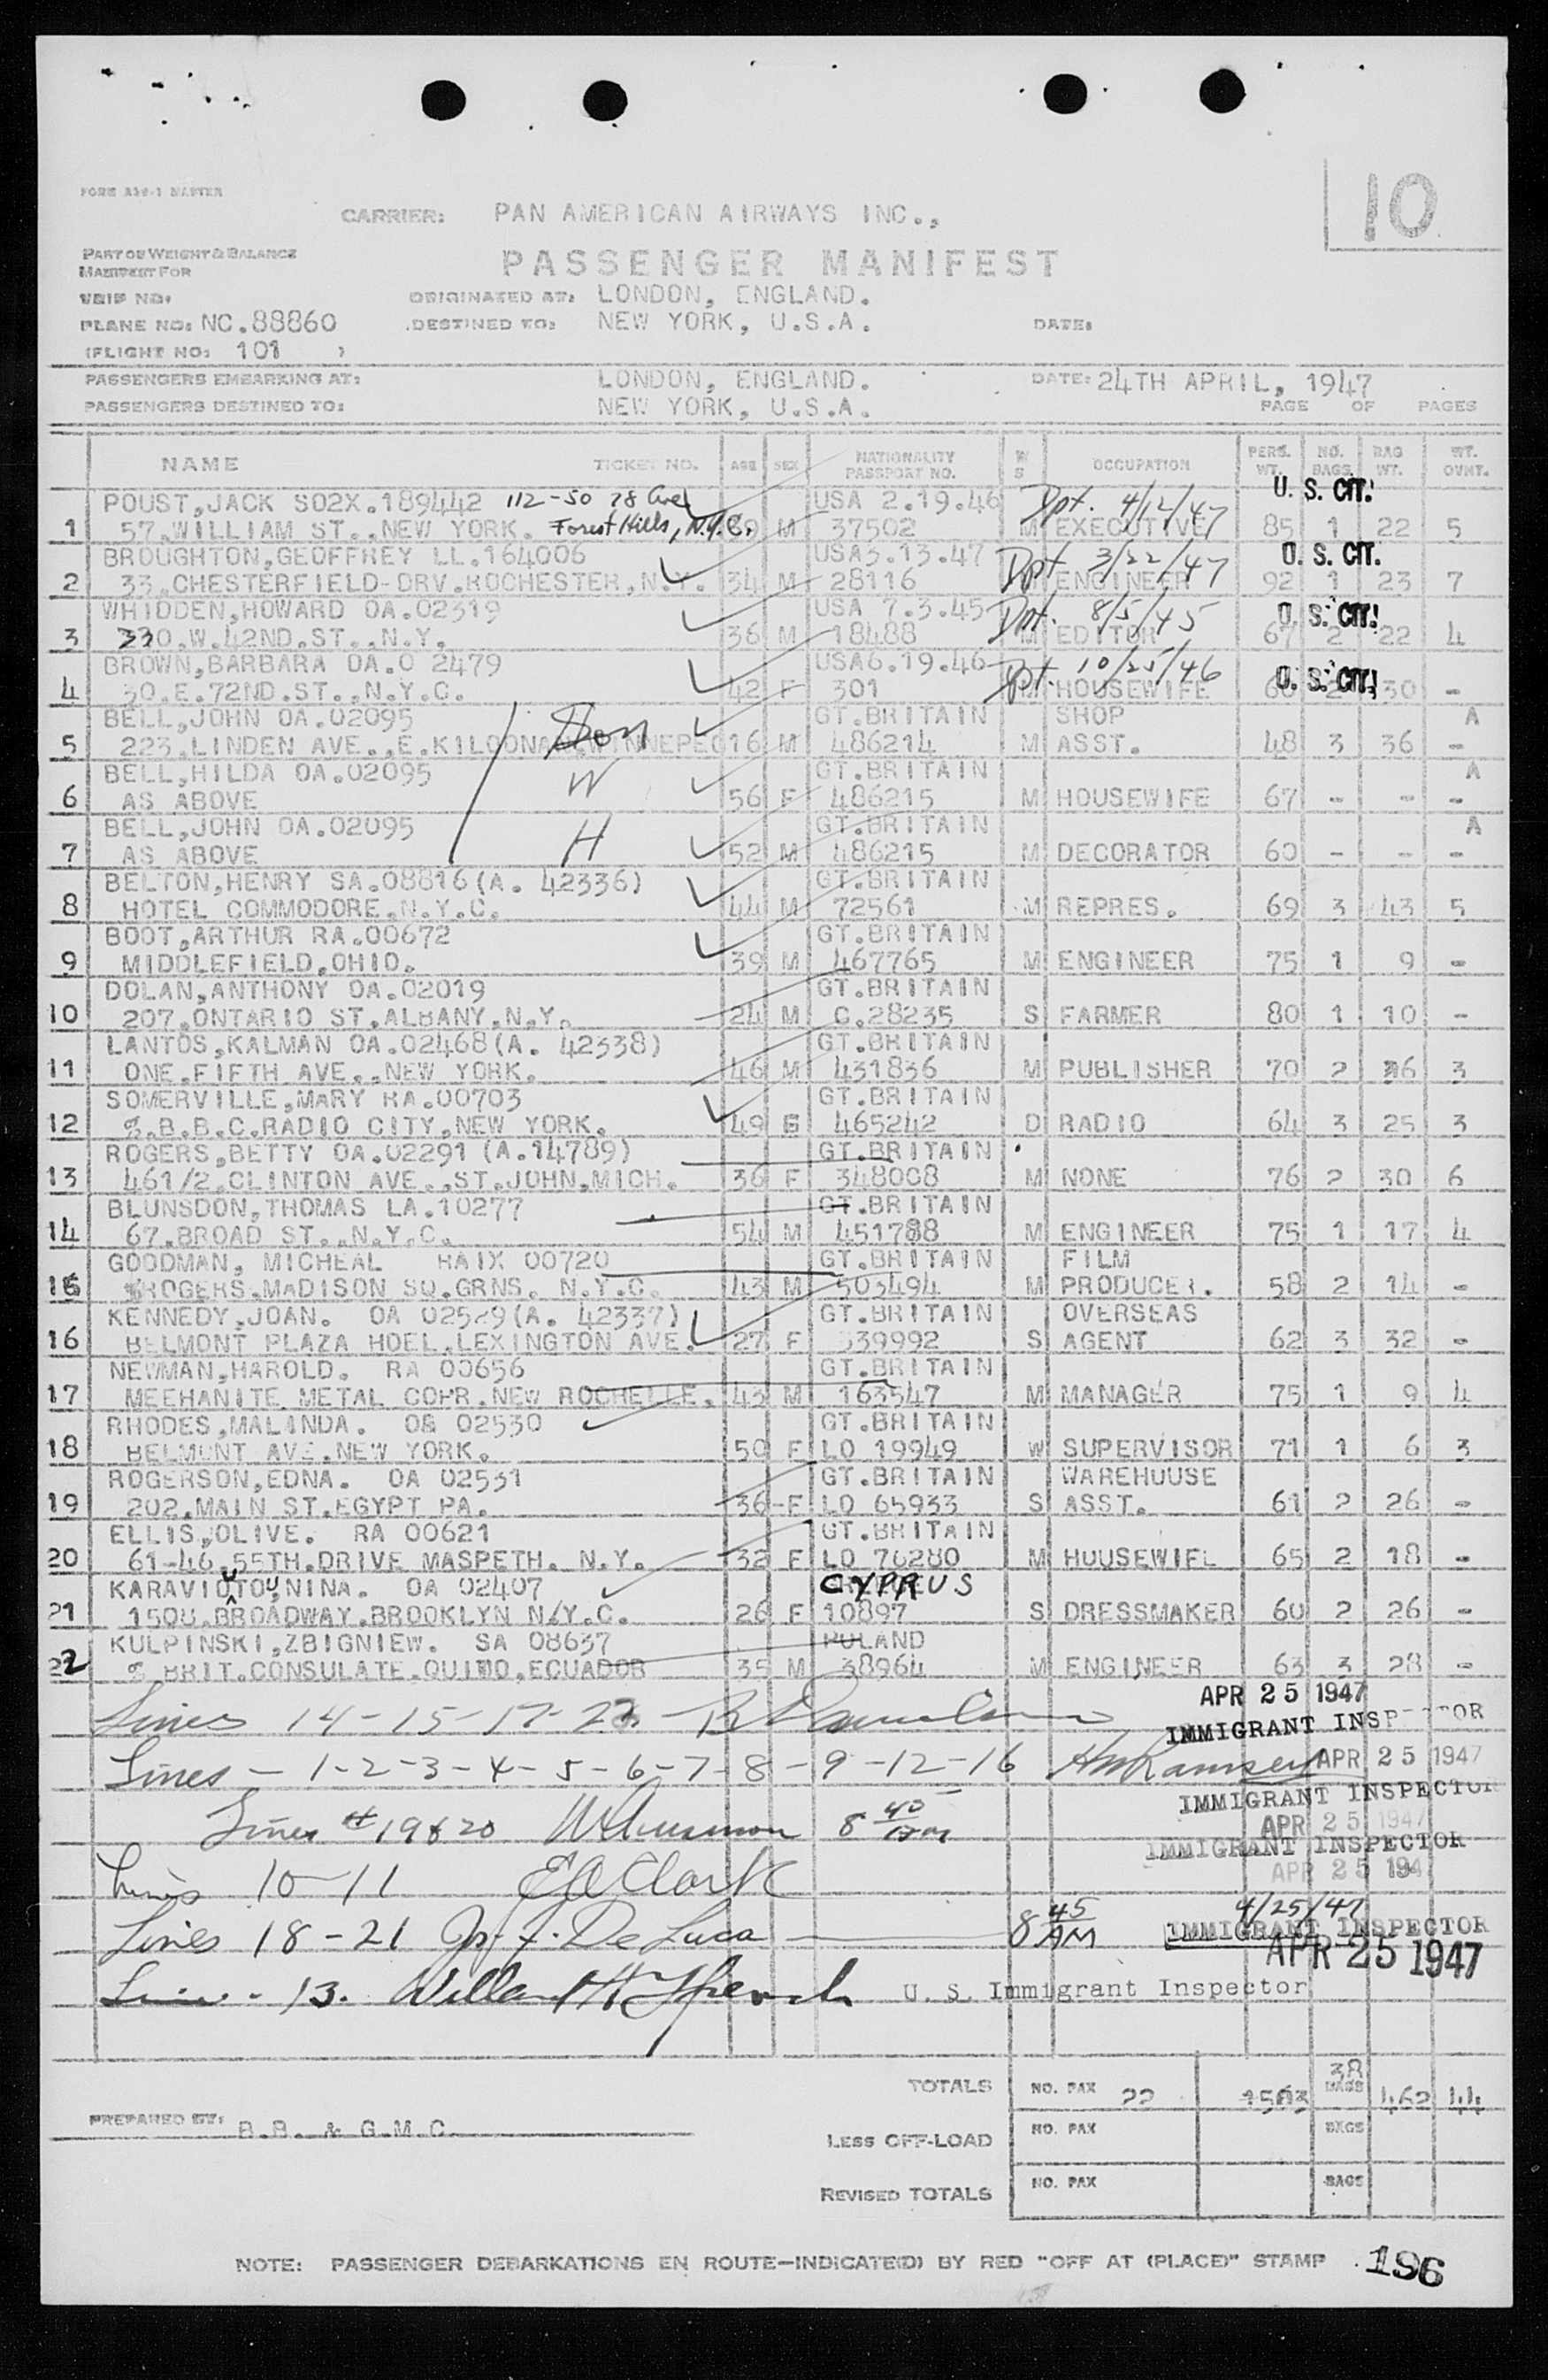 10
FORM A19-1 MASTER
CARRIER: PAN AMERICAN AIRWAYS INC.,
PART OF WEIGHT & BALANCE
MANIFEST FOR
PASSENGER MANIFEST
TRIP NO:
ORIGINATED AT: LONDON, ENGLAND.
PLANE NO: NC.88860
DESTINED TO: NEW YORK, U.S.A.
DATE:
(FLIGHT NO: 101 )
PASSENGERS EMBARKING AT: LONDON, ENGLAND. DATE: 24TH APRIL, 1947
PASSENGERS DESTINED TO: NEW YORK, U.S.A. PAGE OF PAGES
NAME TICKET NO. AGE SEX NATIONALITY PASSPORT NO. W S OCCUPATION PERS. WT. NO. BAGS BAG WT. WT. OVNT.
POUST,JACK S02X.189442 112-50 78 Ave USA 2.19.46 Dpt. 4/12/47 U. S. CIT.
1 57.WILLIAM ST..NEW YORK. Forest Hills, N.Y.C. 39 M 37502 M EXECUTIVE 85 1 22 5
BROUGHTON,GEOFFREY LL.164006 USA3.13.47 Dpt 3/22/47 U. S. CIT.
2 33.CHESTERFIELD-DRV.ROCHESTER,N.Y. 34 M 28116 ENGINEER 92 1 23 7
WHIDDEN,HOWARD OA.02319 USA 7.3.45 Dpt. 8/5/45 U. S. CIT!
3 330.W.42ND.ST..N.Y. 36 M 18488 M EDITOR 67 2 22 4
BROWN,BARBARA OA.O 2479 USA6.19.46 Dpt. 10/25/46 U. S. CIT!
4 30.E.72ND.ST..N.Y.C. 42 F 301 M HOUSEWIFE 60 2 30 -
BELL,JOHN OA.02095 Son GT.BRITAIN SHOP A
5 223.LINDEN AVE..E.KILDONAN.WINNEPEG 16 M 486214 M ASST. 48 3 36 -
BELL,HILDA OA.02095 W GT.BRITAIN A
6 AS ABOVE 56 F 486215 M HOUSEWIFE 67 - - -
BELL,JOHN OA.02095 H GT.BRITAIN A
7 AS ABOVE 52 M 486215 M DECORATOR 60 - - -
BELTON,HENRY SA.08816(A. 42336) GT.BRITAIN
8 HOTEL COMMODORE.N.Y.C. 44 M 72561 M REPRES. 69 3 43 5
BOOT,ARTHUR RA.00672 GT.BRITAIN
9 MIDDLEFIELD,OHIO. 39 M 467765 M ENGINEER 75 1 9 -
DOLAN,ANTHONY OA.02019 GT.BRITAIN
10 207.ONTARIO ST.ALBANY.N.Y. 24 M C.28235 S FARMER 80 1 10 -
LANTOS,KALMAN OA.02468(A. 42338) GT.BRITAIN
11 ONE.FIFTH AVE..NEW YORK. 46 M 431836 M PUBLISHER 70 2 36 3
SOMERVILLE,MARY RA.00703 GT.BRITAIN
12 %.B.B.C.RADIO CITY,NEW YORK. 49 F 465242 D RADIO 64 3 25 3
ROGERS,BETTY OA.02291 (A.14789) GT.BRITAIN
13 461/2.CLINTON AVE..ST.JOHN,MICH. 36 F 348008 M NONE 76 2 30 6
BLUNSDON,THOMAS LA.10277 GT.BRITAIN
14 67.BROAD ST..N.Y.C. 54 M 451788 M ENGINEER 75 1 17 4
GOODMAN, MICHEAL RAIX 00720 GT.BRITAIN FILM
15 %ROGERS.MADISON SQ.GRNS. N.Y.C. 43 M 503494 M PRODUCER. 58 2 14 -
KENNEDY,JOAN. OA 02529(A. 42337) GT.BRITAIN OVERSEAS
16 BELMONT PLAZA HOEL.LEXINGTON AVE. 27 F 339992 S AGENT 62 3 32 -
NEWMAN,HAROLD. RA 00656 GT.BRITAIN
17 MEEHANITE METAL COPR.NEW ROCHELLE. 43 M 163547 M MANAGER 75 1 9 4
RHODES,MALINDA. OA 02530 GT.BRITAIN
18 BELMONT AVE.NEW YORK. 50 F LO 19949 W SUPERVISOR 71 1 6 3
ROGERSON,EDNA. OA 02531 GT.BRITAIN WAREHOUSE
19 202.MAIN ST.EGYPT PA. 36 F LO 65933 S ASST. 61 2 26 -
ELLIS,OLIVE. RA 00621 GT.BRITAIN
20 61-46.55TH.DRIVE MASPETH. N.Y. 32 F LO 76280 M HOUSEWIFE 65 2 18 -
KARAVIOTOU,NINA. OA 02407 CYPRUS
21 1500.BROADWAY.BROOKLYN N.Y.C. 26 F 10897 S DRESSMAKER 60 2 26 -
KULPINSKI,ZBIGNIEW. SA 08637 POLAND
22 % BRIT.CONSULATE.QUITO,ECUADOR 35 M 38964 M ENGINEER 63 3 28 -
Lines 14-15-17-22 APR 25 1947
IMMIGRANT INSPECTOR
Lines - 1-2-3-4-5-6-7-8-9-12-16 HM Ramsey APR 25 1947
IMMIGRANT INSPECTOR
Lines # 19 & 20 8 40 AM APR 25 1947
IMMIGRANT INSPECTOR
Lines 10-11 E A Clark APR 25 194
Lines 18-21 Jos. F. De Luca 8 45 AM 4/25/47
IMMIGRANT INSPECTOR
APR 25 1947
Line - 13. Willard H French U. S. Immigrant Inspector
TOTALS NO. PAX 22 1503 38 BAGS 462 44
PREPARED BY: B.B. & G.M.C.
LESS OFF-LOAD NO. PAX BAGS
REVISED TOTALS NO. PAX BAGS
NOTE: PASSENGER DEBARKATIONS EN ROUTE—INDICATE(D) BY RED "OFF AT (PLACE)" STAMP
196